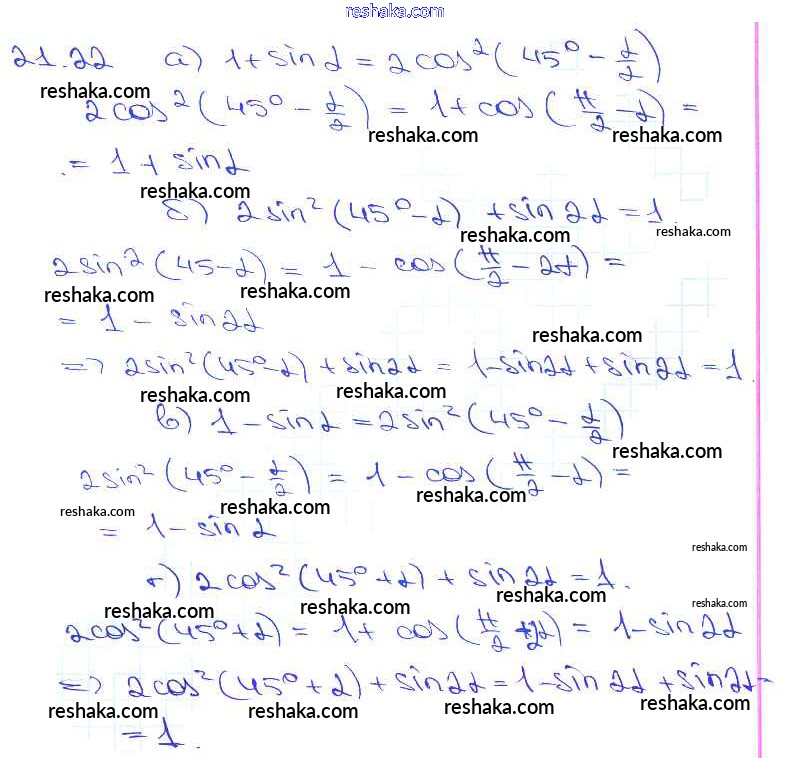 reshaka.com
21.22 а) 1 + sin α = 2 cos² (45° − α/2)
reshaka.com
2 cos² (45° − α/2) = 1 + cos (π/2 − α) =
reshaka.com reshaka.com
= 1 + sin α
reshaka.com
б) 2 sin² (45° − α) + sin 2α = 1.
reshaka.com reshaka.com
2 sin² (45 − α) = 1 − cos (π/2 − 2α) =
reshaka.com reshaka.com
= 1 − sin 2α
reshaka.com
=> 2 sin² (45° − α) + sin 2α = 1 − sin 2α + sin 2α = 1.
reshaka.com reshaka.com
в) 1 − sin α = 2 sin² (45° − α/2)
reshaka.com
2 sin² (45° − α/2) = 1 − cos (π/2 − α) =
reshaka.com reshaka.com reshaka.com
= 1 − sin α
reshaka.com
г) 2 cos² (45° + α) + sin 2α = 1.
reshaka.com reshaka.com reshaka.com reshaka.com
2 cos² (45° + α) = 1 + cos (π/2 + 2α) = 1 − sin 2α
=> 2 cos² (45° + α) + sin 2α = 1 − sin 2α + sin 2α =
reshaka.com reshaka.com reshaka.com reshaka.com
= 1.